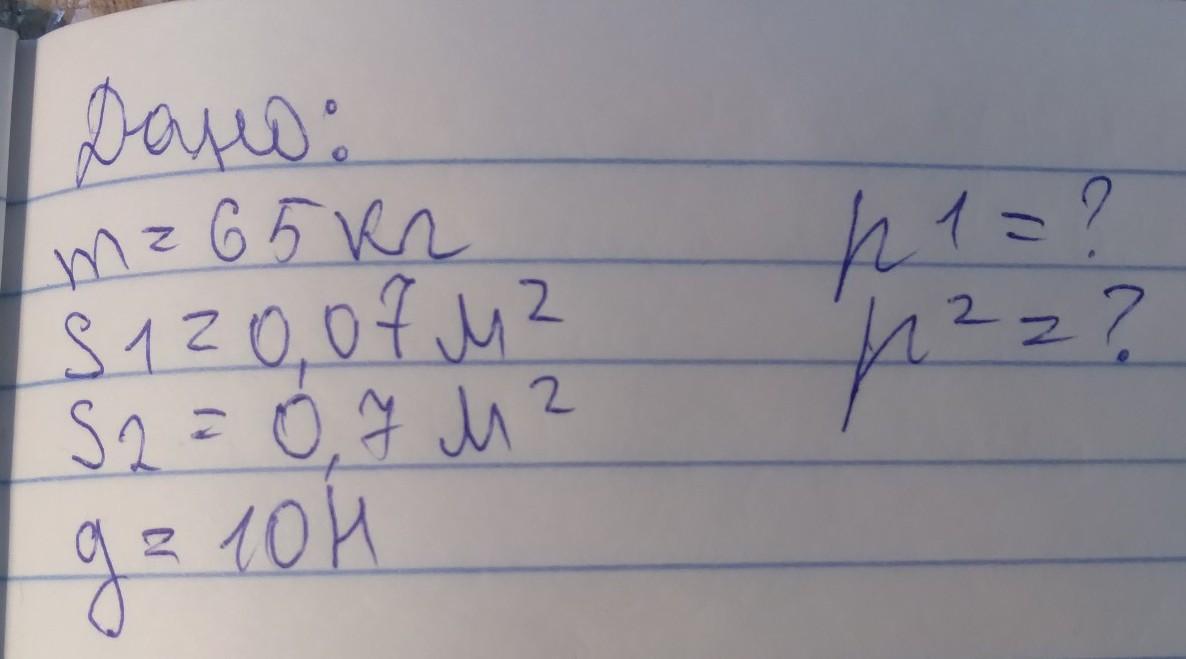 Дано:
m = 65 кг
S1 = 0,07 м²
S2 = 0,7 м²
g = 10Н
p1 = ?
p2 = ?